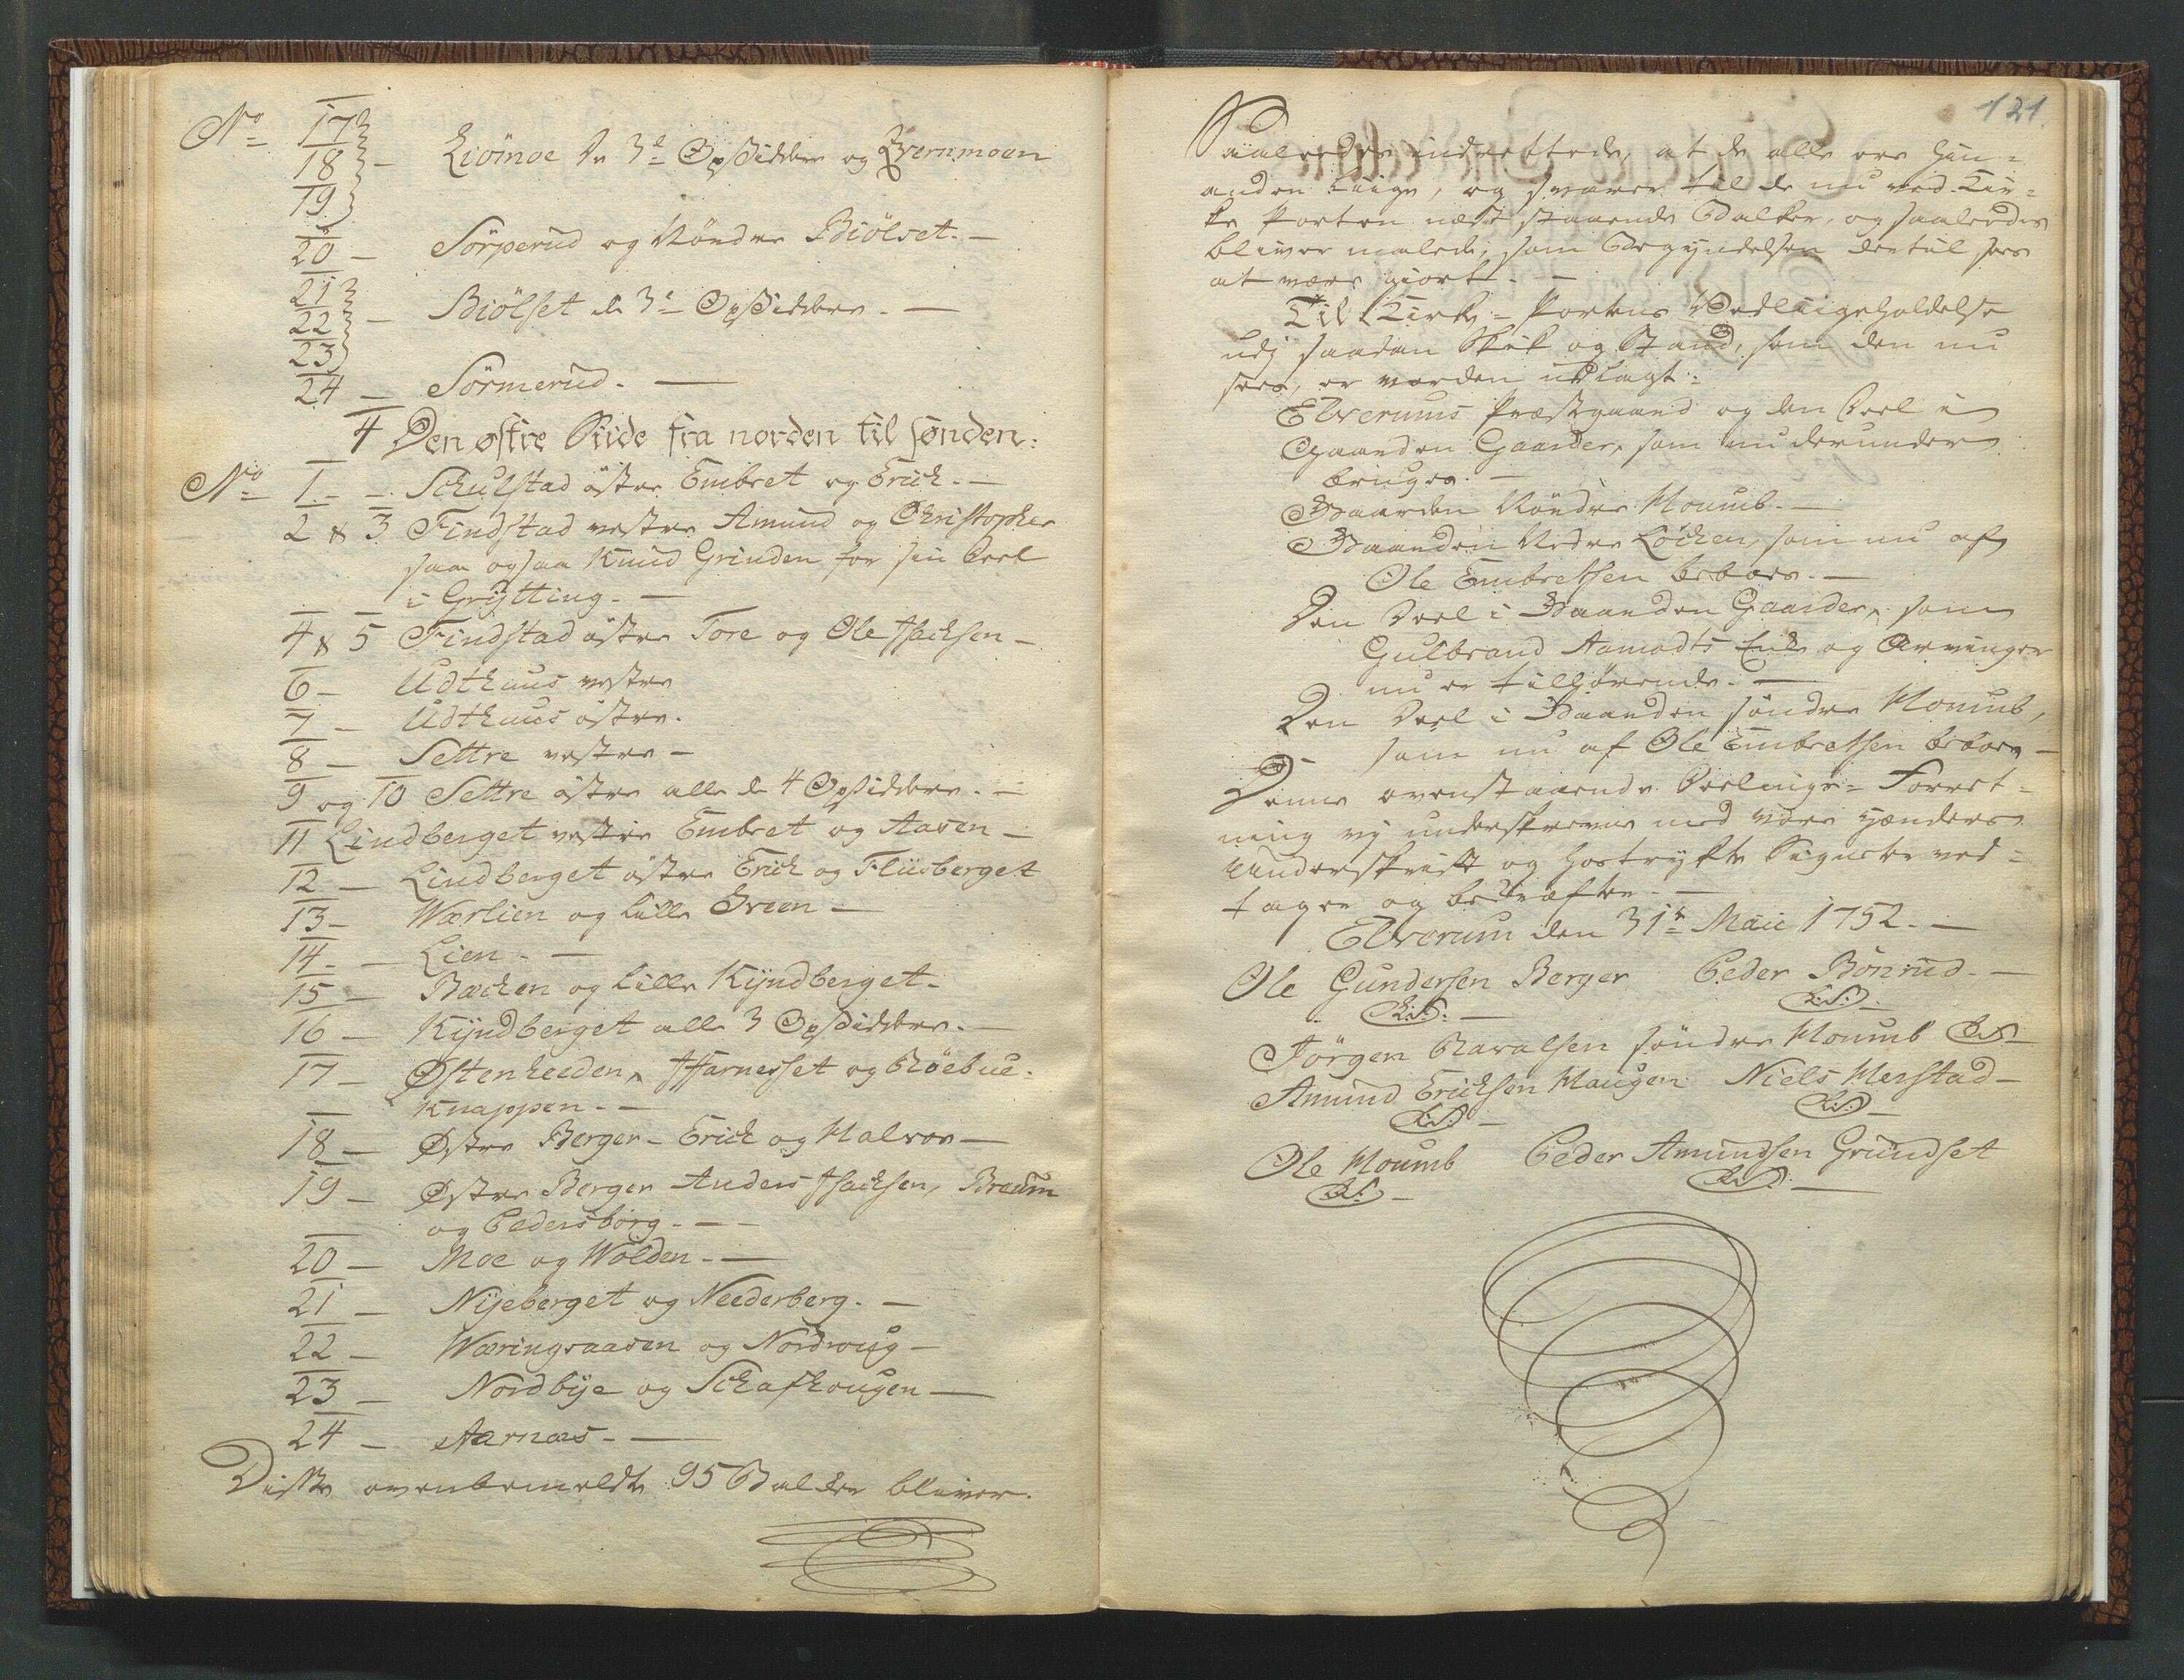 No 17
18 - Liömoe de 3de Opsidder og Qvernmoen
19
20 - Sörperud og Nöndre Biölset. -
21
22 - Biölset de 3de Opsiddere. -
23
24 - Sörmerud. -
4 Den østre Siide fra norden til sønden:
No 1. - Schulstad östre Embret og Erich. -
2 & 3 Findstad vestre Amund og Christopher
saa ogsaa Knud Grinden for sin Deel
i Grÿtting. -
4 & 5 Findstad östre Tore og Ole Isachsen -
6 - Udthuus vestre
7 - Udthuus östre.
8 - Settre vestre -
9 og 10 Settre östre alle de 4 Opsiddere. -
11 Lindberget vestre Embret og Aasen -
12 - Lindberget östre Erich og Fliisberget
13 - Wærlien og lille Green -
14. - Lien. -
15 - Bæchen og lille Kÿndberget.
16 - Kÿndberget alle 3 Opsiddere. -
17 - Østenheeden, Harnesset og Röebue-
Knappen. -
18 - Østre Berger - Erich og Halvor -
19 - Østre Berger Anders Isachsen, Braum
og Pedersborg. -
20 - Moe og Wolden. -
21 - Nÿeberget og Neederberg. -
22 - Wæringsaasen og Nordroug -
23 - Nordbÿe og Schafhougen -
24 - Aarnæs. -
Disse ovenbemeldte 95 Balker bliver.
121
Saaledes indrettede, at de alle ere hin-
anden liige, og svarer til de nu ved Kir-
ke Porten næst staaende Balker, og saaledes
bliver malede, som Begÿndelsen dertil sees
at være giort. -
Til Kirke-Portens Vedliigeholdelse
udj saadan Skik og Stand, som den nu
sees, er vorden udlagt:
Elverums Præstgaard og den Deel i
Gaarden Gaarder, som nu derunder
bruges. -
Gaarden Nöndre Houmb. -
Gaarden Nedre Löchen, som nu af
Ole Embretsen beboes. -
Den Deel i Gaarden Gaarder, som
Gulbrand Aamodts Enke og Arvinger
nu er tilhörende. -
Den Deel i Gaarden söndre Houmb,
som nu af Ole Embretsen beboes -
Denne ovenstaaende Deelings-Forret-
ning vj underskrevne med vore Hænders
Underskrift og hostrÿkte Signeter ved-
tager og bekræfter. -
Elverum den 31te Maii 1752. -
Ole Gundersen Berger Peder Bönrud. -
L.S. - L.S.
Jörgen Pavalsen söndre Houmb L.S. -
Amund Erichsen Haugen Niels Herstad -
L.S. - L.S. -
Ole Houmb Peder Amundsen Grundset
L.S. - L.S. -